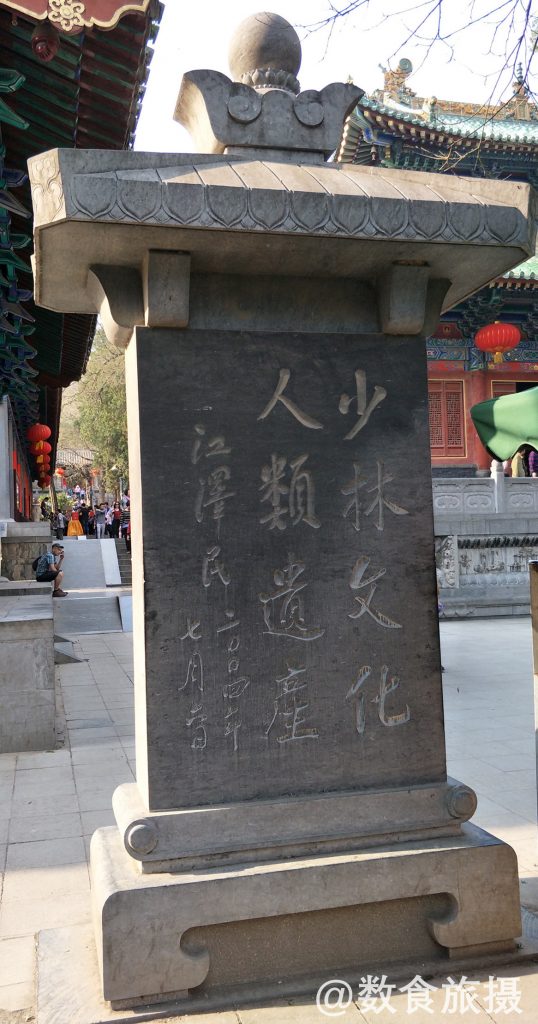 少林文化
人類遺産
江澤民
二〇〇四年
七月
@数食旅摄